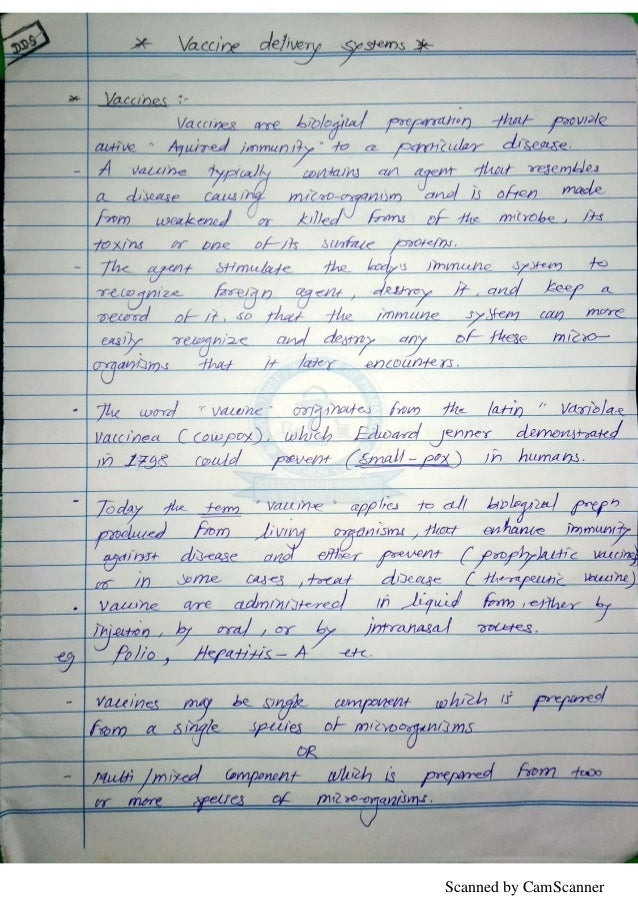 DDS
* Vaccine delivery systems *
* Vaccines :-
Vaccines are biological preparation that provide
active "Aquired immunity" to a particular disease.
- A vaccine typically contains an agent that resembles
a disease causing micro-organism and is often made
from weakened or killed forms of the microbe, its
toxins or one of its surface proteins.
- The agent stimulate the body's immune system to
recognize foreign agent, destroy it, and keep a
record of it, so that the immune system can more
easily recognize and destroy any of these micro-
organisms that it later encounters.
• The word "vaccine" originates from the latin " variolae
vaccinea (cowpox), which Edward jenner demonstrated
in 1798 could prevent (small-pox) in humans.
• Today the term "vaccine" applies to all biological prepn
produced from living organisms, that enhance immunity
against disease and either prevent (prophylactic vaccine)
or in some cases, treat disease (therapeutic vaccine)
• vaccine are administered in liquid form, either by
injection, by oral, or by intranasal routes.
eg Polio, Hepatitis-A etc.
- vaccines may be single component which is prepared
from a single species of microorganisms
OR
- Multi/mixed component which is prepared from two
or more species of micro-organisms.
Scanned by CamScanner